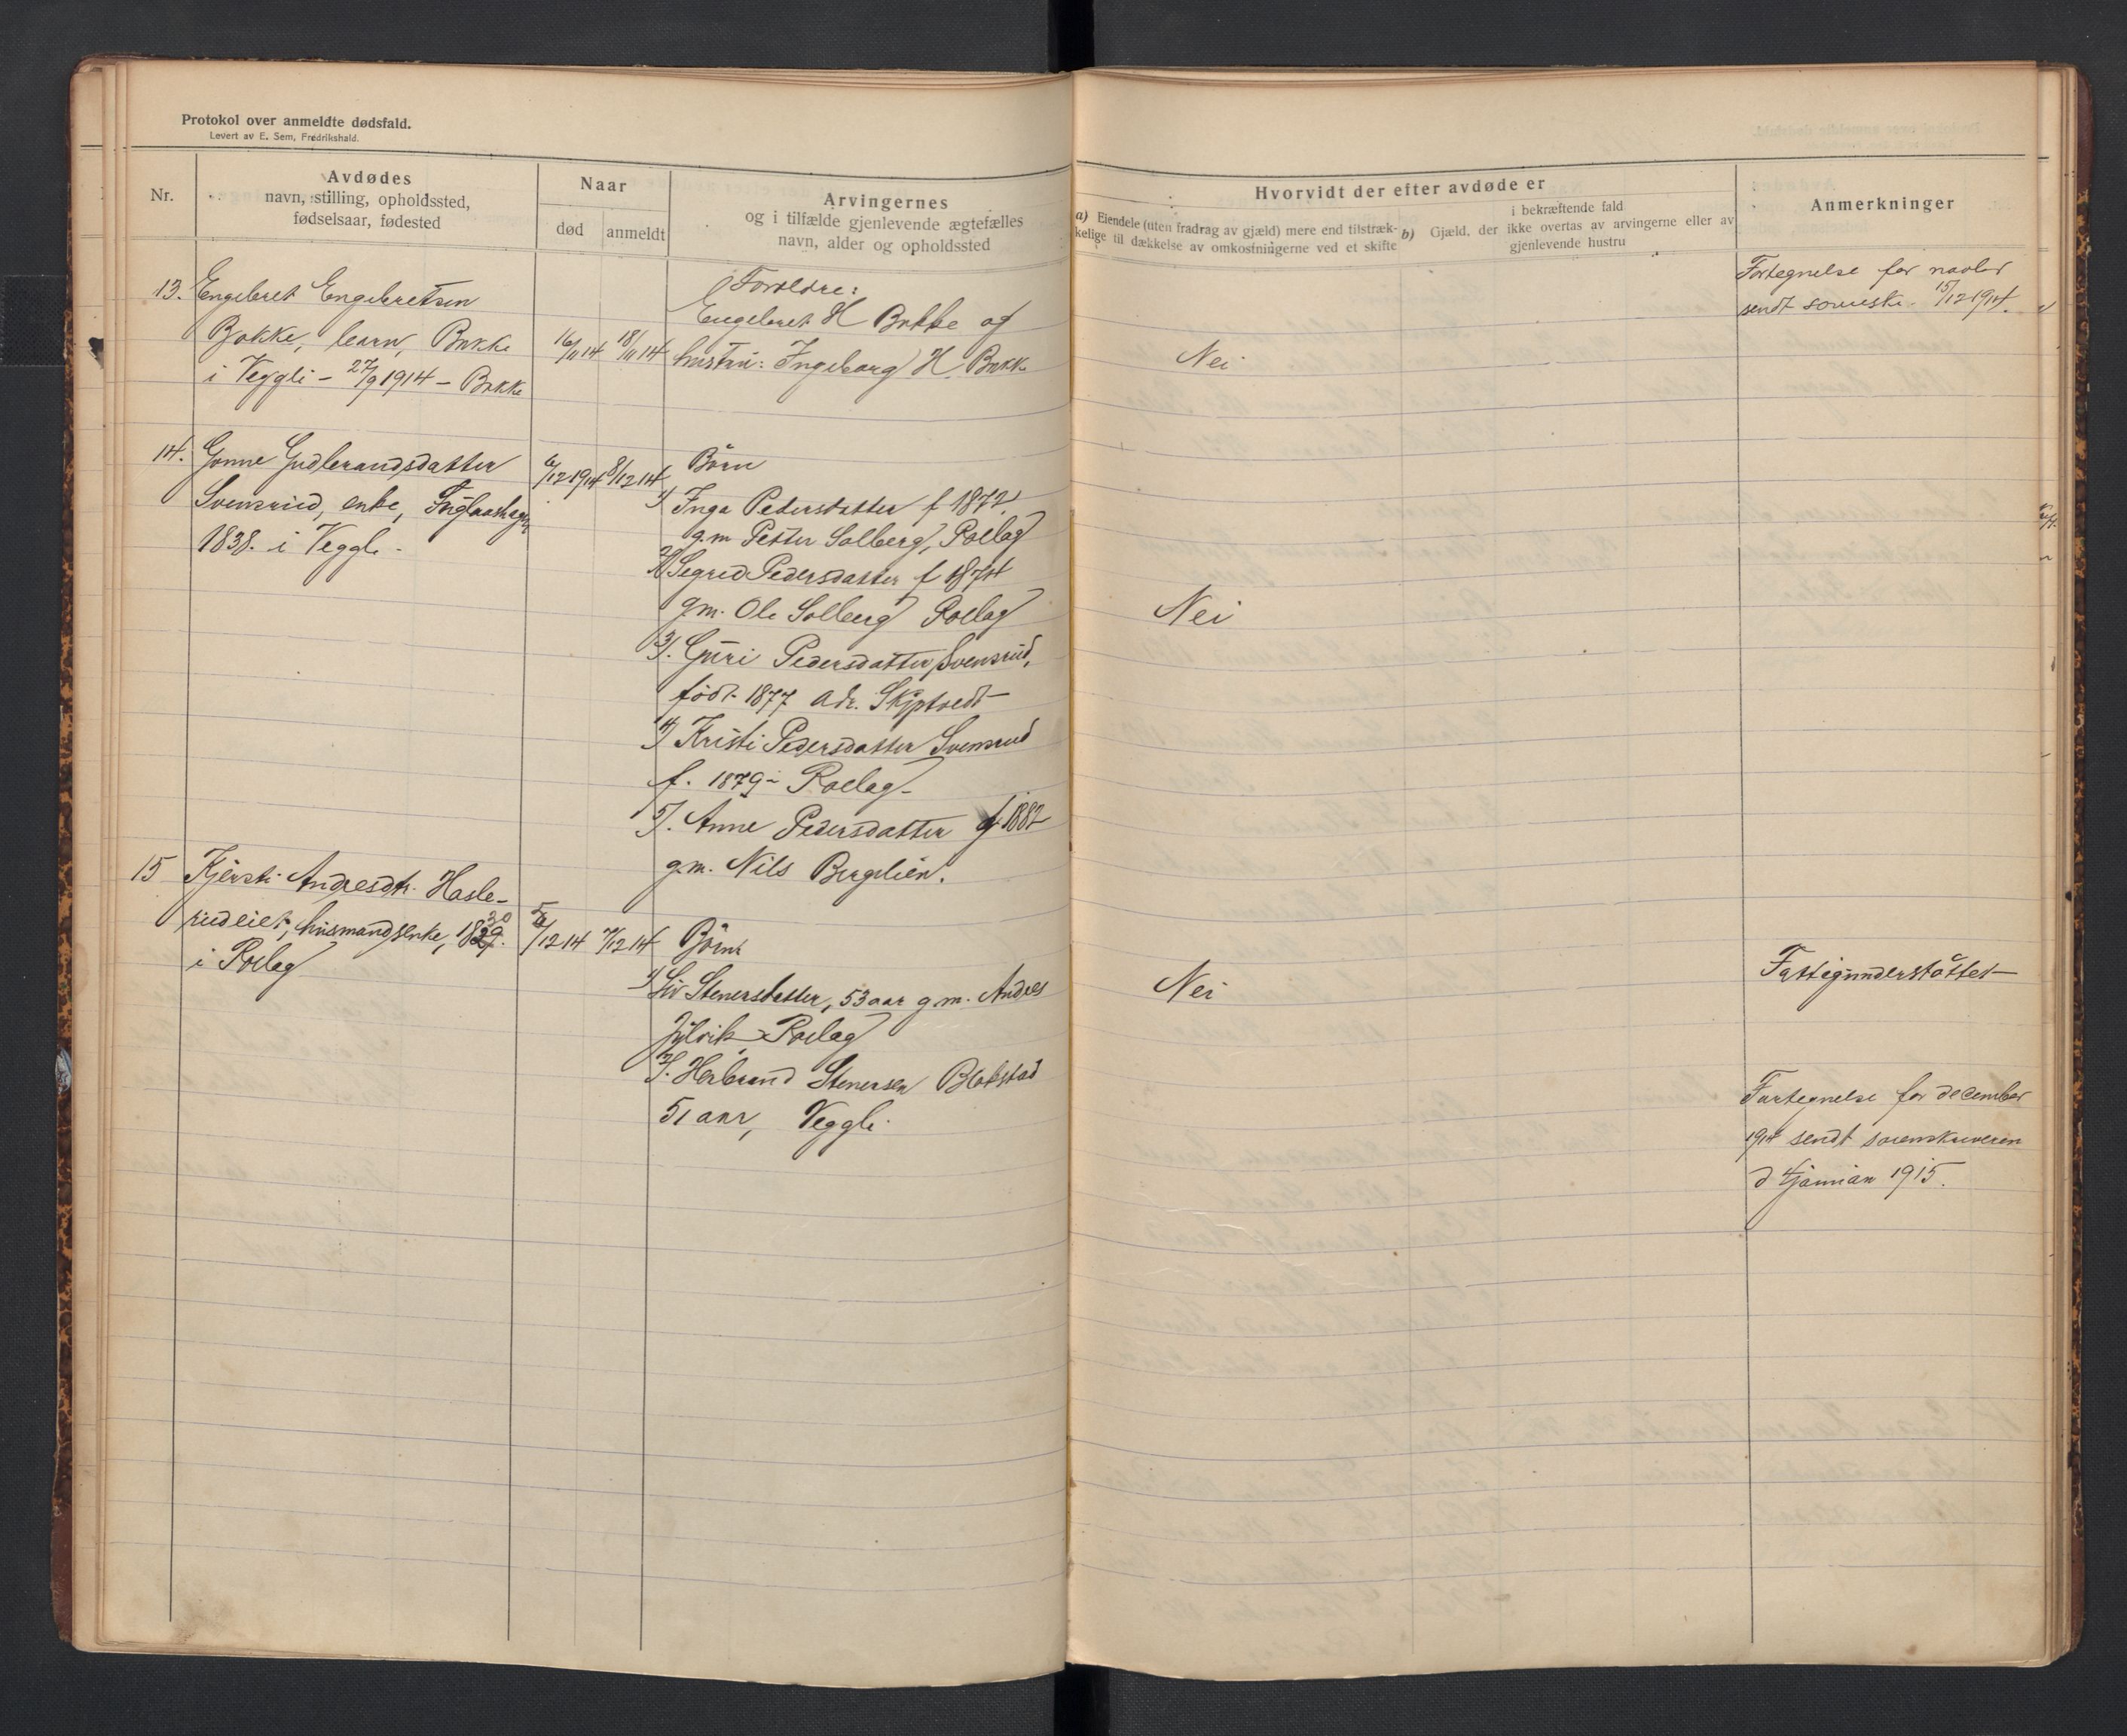 Protokol over anmeldte dødsfald.
Levert av E. Sem, Fredrikshald.
Nr.
Avdødes
navn, stilling, opholdssted,
fødselsaar, fødested
Naar
død
anmeldt
Arvingernes
og i tilfælde gjenlevende ægtefælles
navn, alder og opholdssted
Hvorvidt der efter avdøde er
a) Eiendele (uten fradrag av gjæld) mere end tilstræk-
kelige til dækkelse av omkostningerne ved et skifte
i bekræftende fald
b) Gjæld, der ikke overtas av arvingerne eller av
gjenlevende hustru
Anmerkninger
13. Engebret Engebretsen
Bakke, barn, Bakke
i Veggli - 27/9 1914 - Bakke
16/11 14
18/11 14
Foreldre:
Engebret H Bakke og
hustru: Ingeborg H. Bakke
Nei
Fortegnelse for
sendt 15/12 1914.
14. Gonne Gudbrandsdatter
Svensrud, enke,
1838. i Veggli.
6/12 1914
8/12 14
Børn
1) Inga Pedersdatter f 1872,
g.m Petter Solberg, Rollag
2) Sigrid Pedersdatter f 1874
gm. Ole Solberg Rollag
3). Guri Pedersdatter Svensrud,
født 1877 adr. Skiptvedt
4) Kristi Pedersdatter Svensrud
f. 1879 i Rollag.
5). Anne Pedersdatter f 1882
g.m. Nils Bergelien.
Nei
15 Kjersti Andresdtr. Hasle-
rudeiet, husmandsenke, 1830
i Rollag
5/12 14
7/12 14
Børn
1) Liv Stenersdatter, 53 aar g.m. Andres
Rollag
2). Herbrand Stenersen Blokstad
51 aar, Veggli.
Nei
Fattigunderstøttet
Fortegnelse for december
1914 sendt sorenskriveren
d 4 januar 1915.